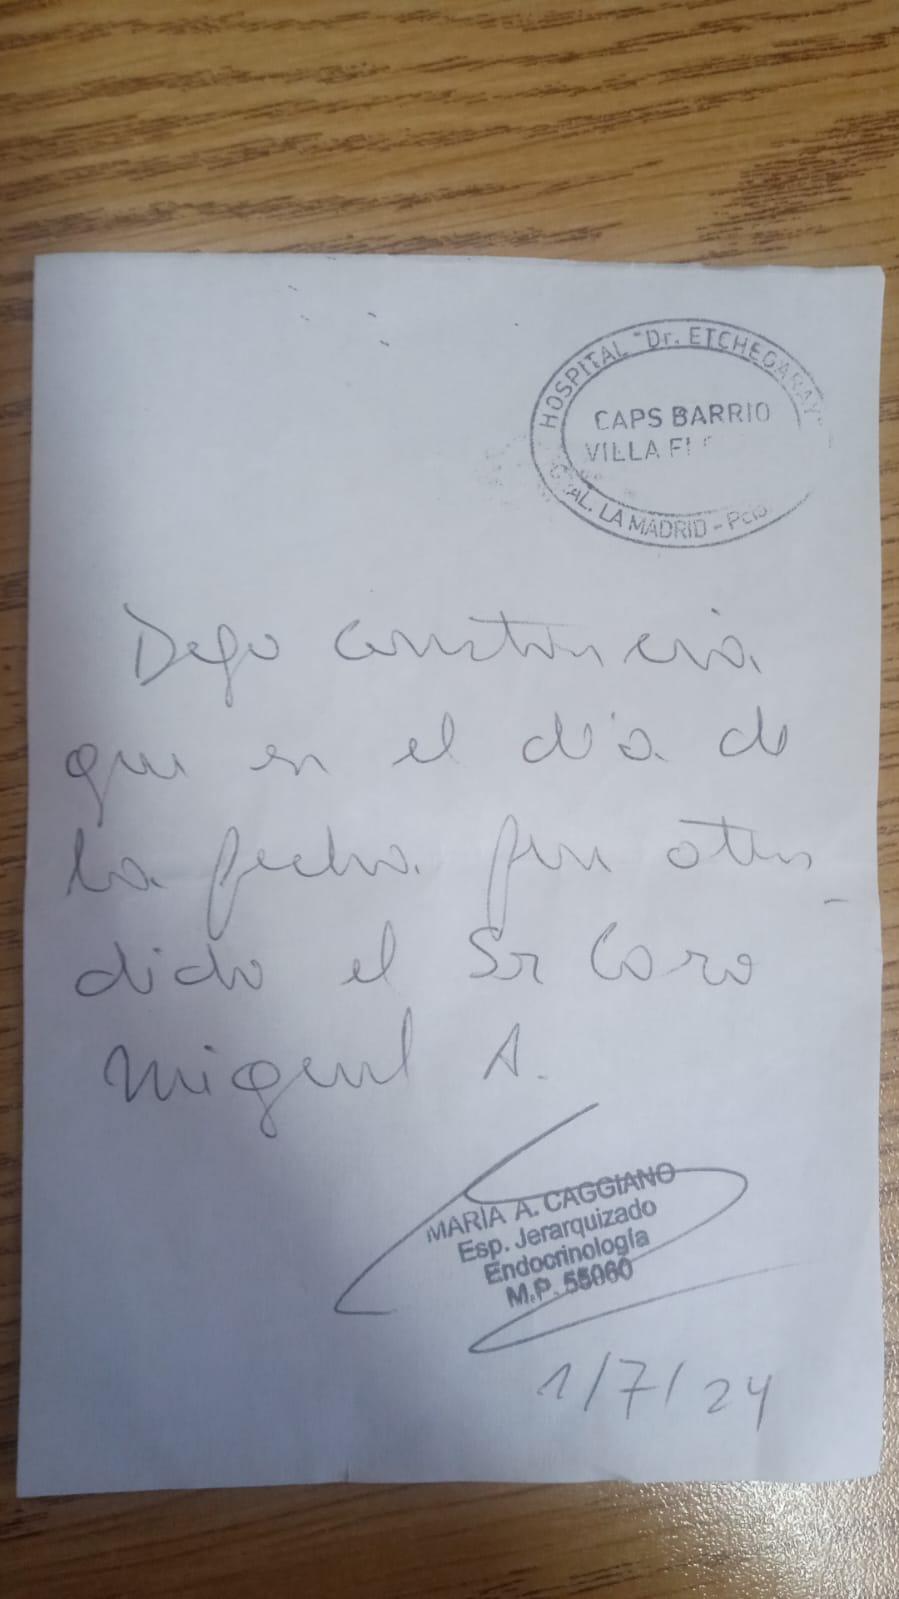 HOSPITAL "Dr. ETCHEGARAY"
CAPS BARRIO
VILLA
GRAL. LA MADRID - Pcia
Dejo constancia
que en el día de
la fecha fue aten-
dido el Sr Caro
Miguel A.
MARIA A. CAGGIANO
Esp. Jerarquizado
Endocrinología
M.P. 55060
1/7/24